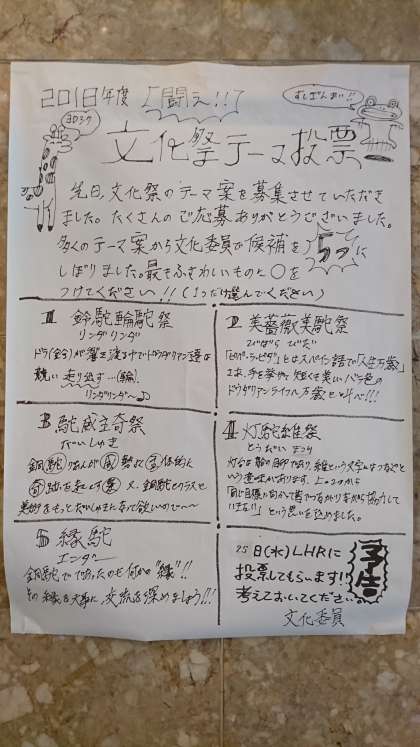 2018年度 「闘え!!」
ヨロシク
すしぼんおい!!
文化祭テーマ投票
先日、文化祭のテーマ案を募集させていただき
ました。たくさんのご応募ありがとうございました。
多くのテーマ案から文化委員が候補を5つに
しぼりました。最もふさわしいものに○を
つけてください!!(1つだけ選んでください)
鈴駝輪駝祭
リンダリンダ
ドラ(金)が響き渡る中でドウダリアン達は
競い走り出す…(輪)
リンダリンダ〜♪
美薔薇美駝祭
びばら びだ
「ビバ・ラ・ビダ」とはスペイン語で「人生万歳」
さあ、手を挙げて 短くも美しいバラ色の
ドウダリアンライフに万歳と叫べ!!!
3 駝威主奇祭
だいしゅき
銅駝
奇跡を起こす祭 又、銅駝とクラスと
美術をもっとだいしゅきになって欲しいので〜〜
4 灯駝維祭
とうだい まつり
灯台は船の目印であり、維という文字はつなぐと
いう意味があります。上の2つから
「同じ目標に向かって皆でつながりながら協力して
いきたい」という思いを込めました。
5 縁駝
エンダー
銅駝で出会ったのも何かの"縁"!!
その縁を大事に、交流を深めましょう!!!
25日(水)LHRに
投票してもらいます!!
考えておいてください。
予告
文化委員